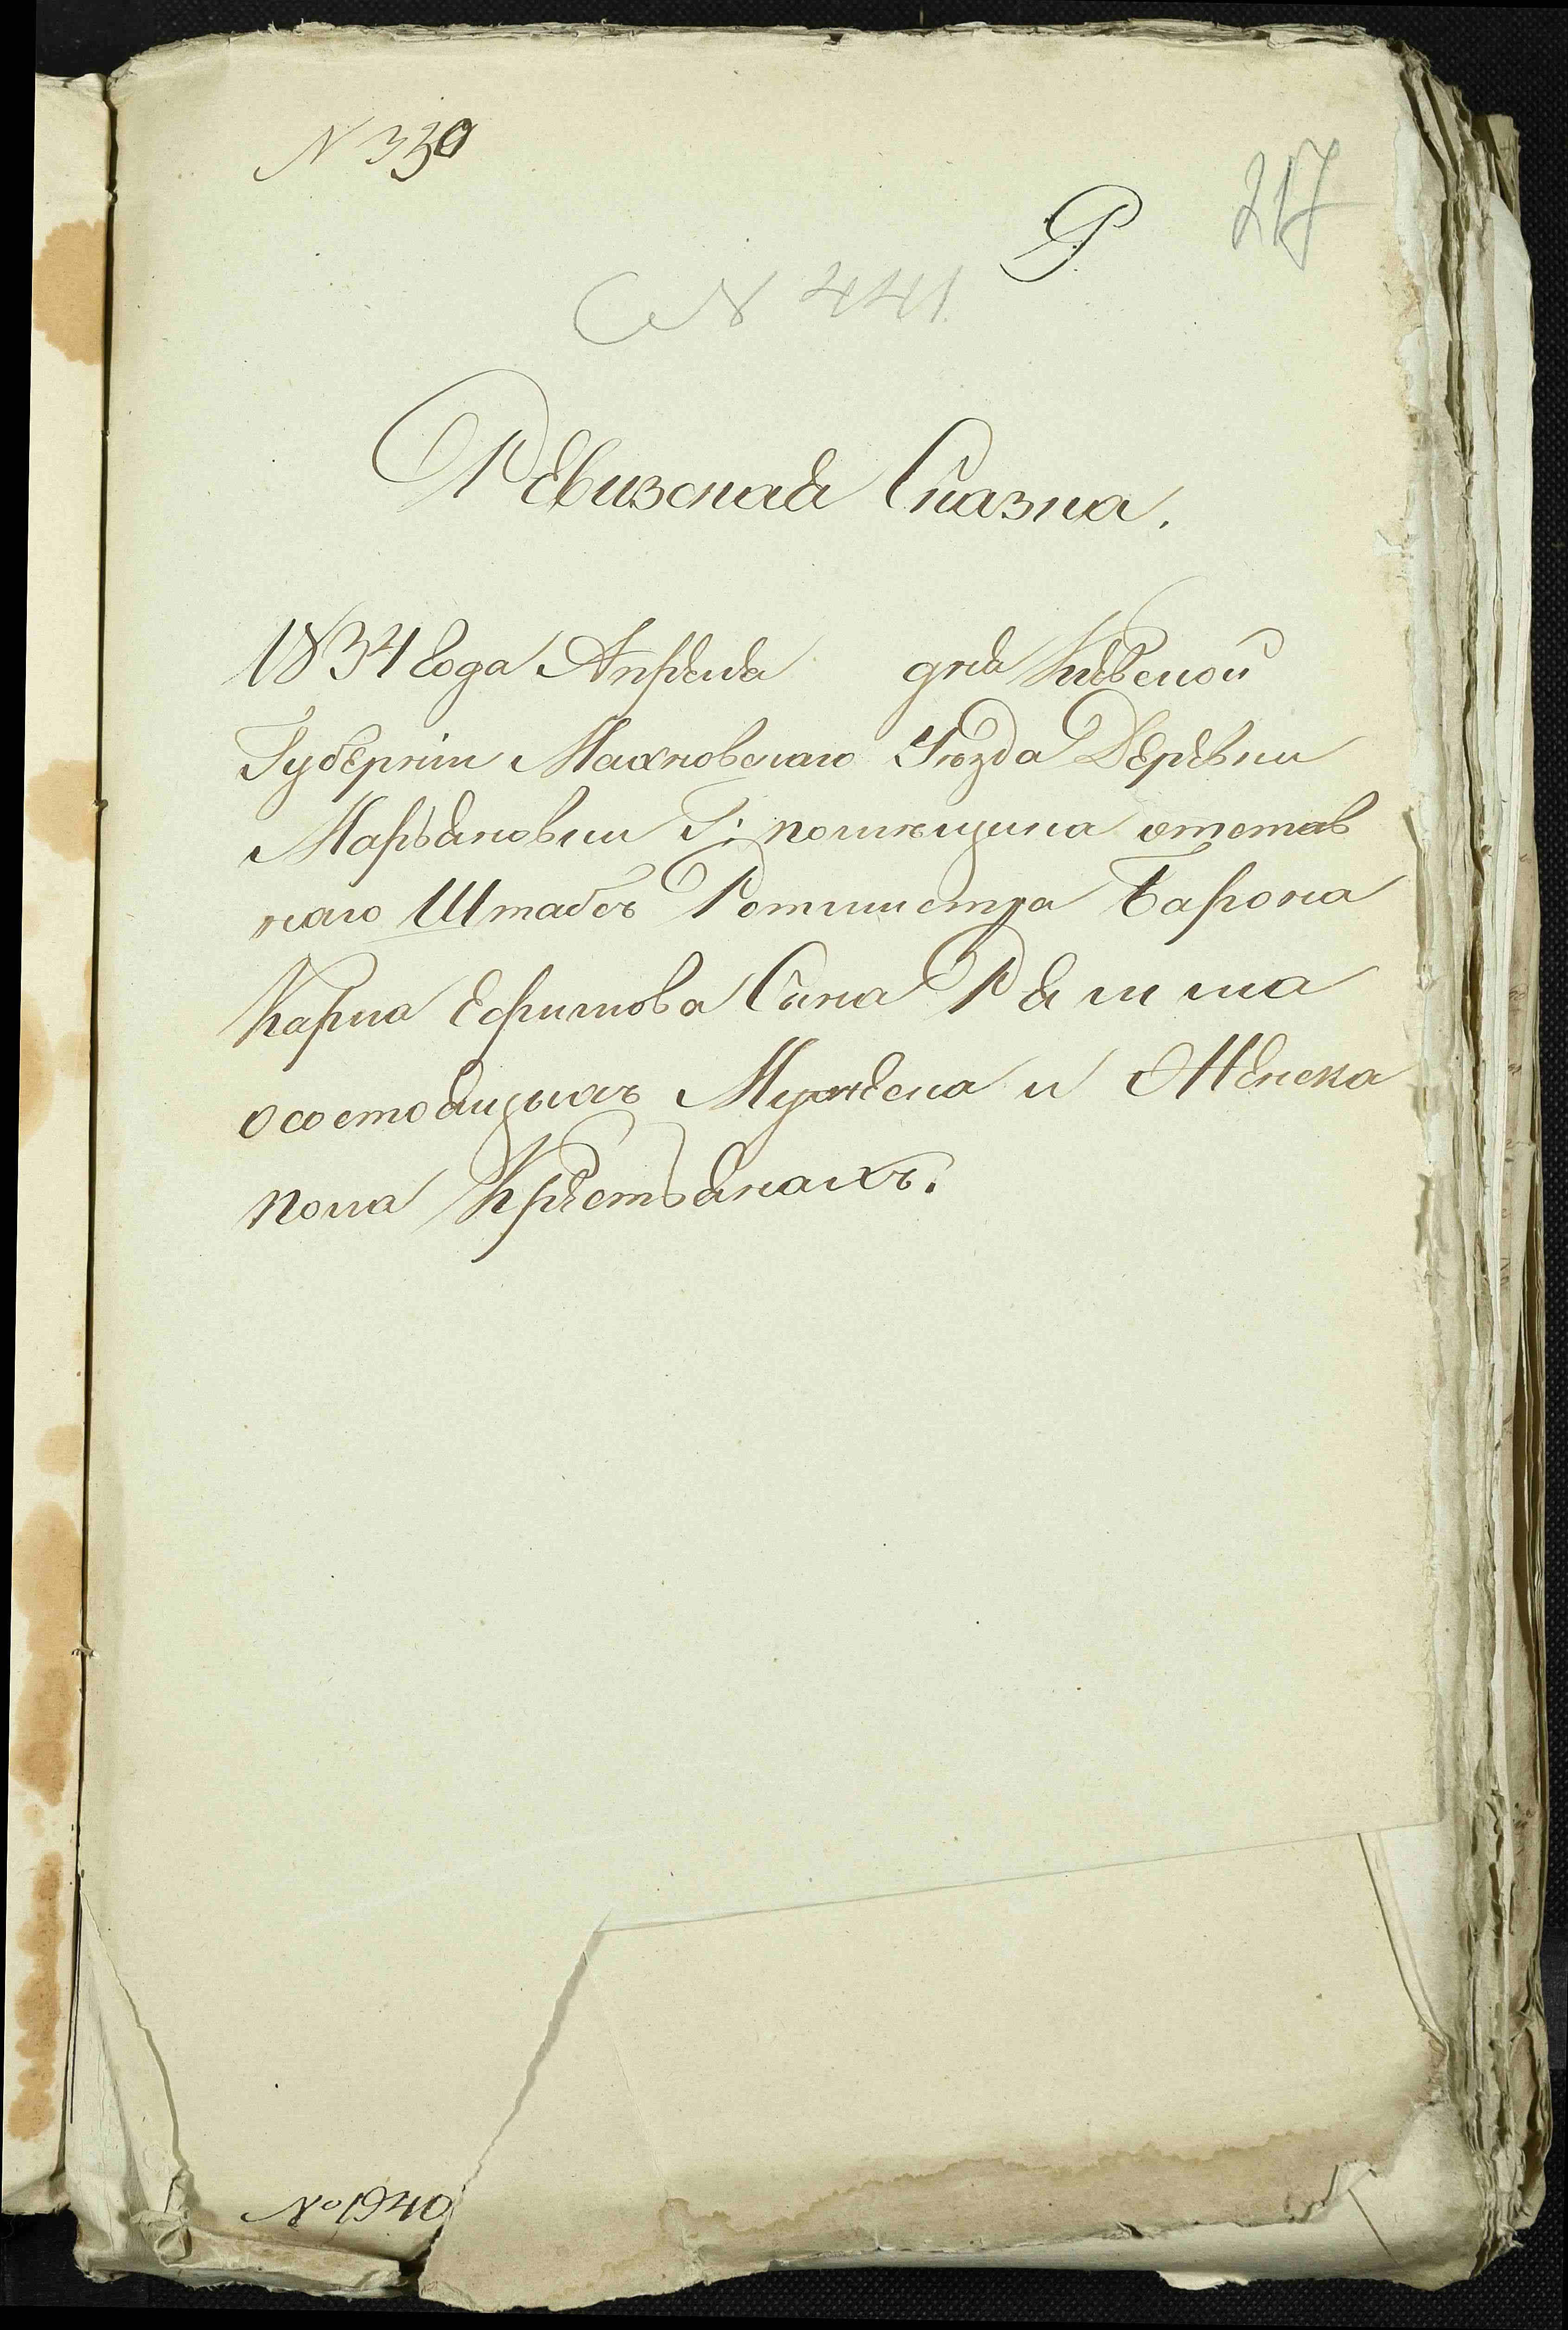 N 330
217
Р
N 441.
Ревизская Сказка.
1834 Года Апреля дня Киевской
Губерніи Махновскаго Уѣзда Деревни
Марьяновки Г: помѣщика отстав
наго Штабсъ Ротмистра Барона
Карла Ефимова Сына
о состоящихъ Мужеска и Женска
пола Крестьянахъ.
№ 1940